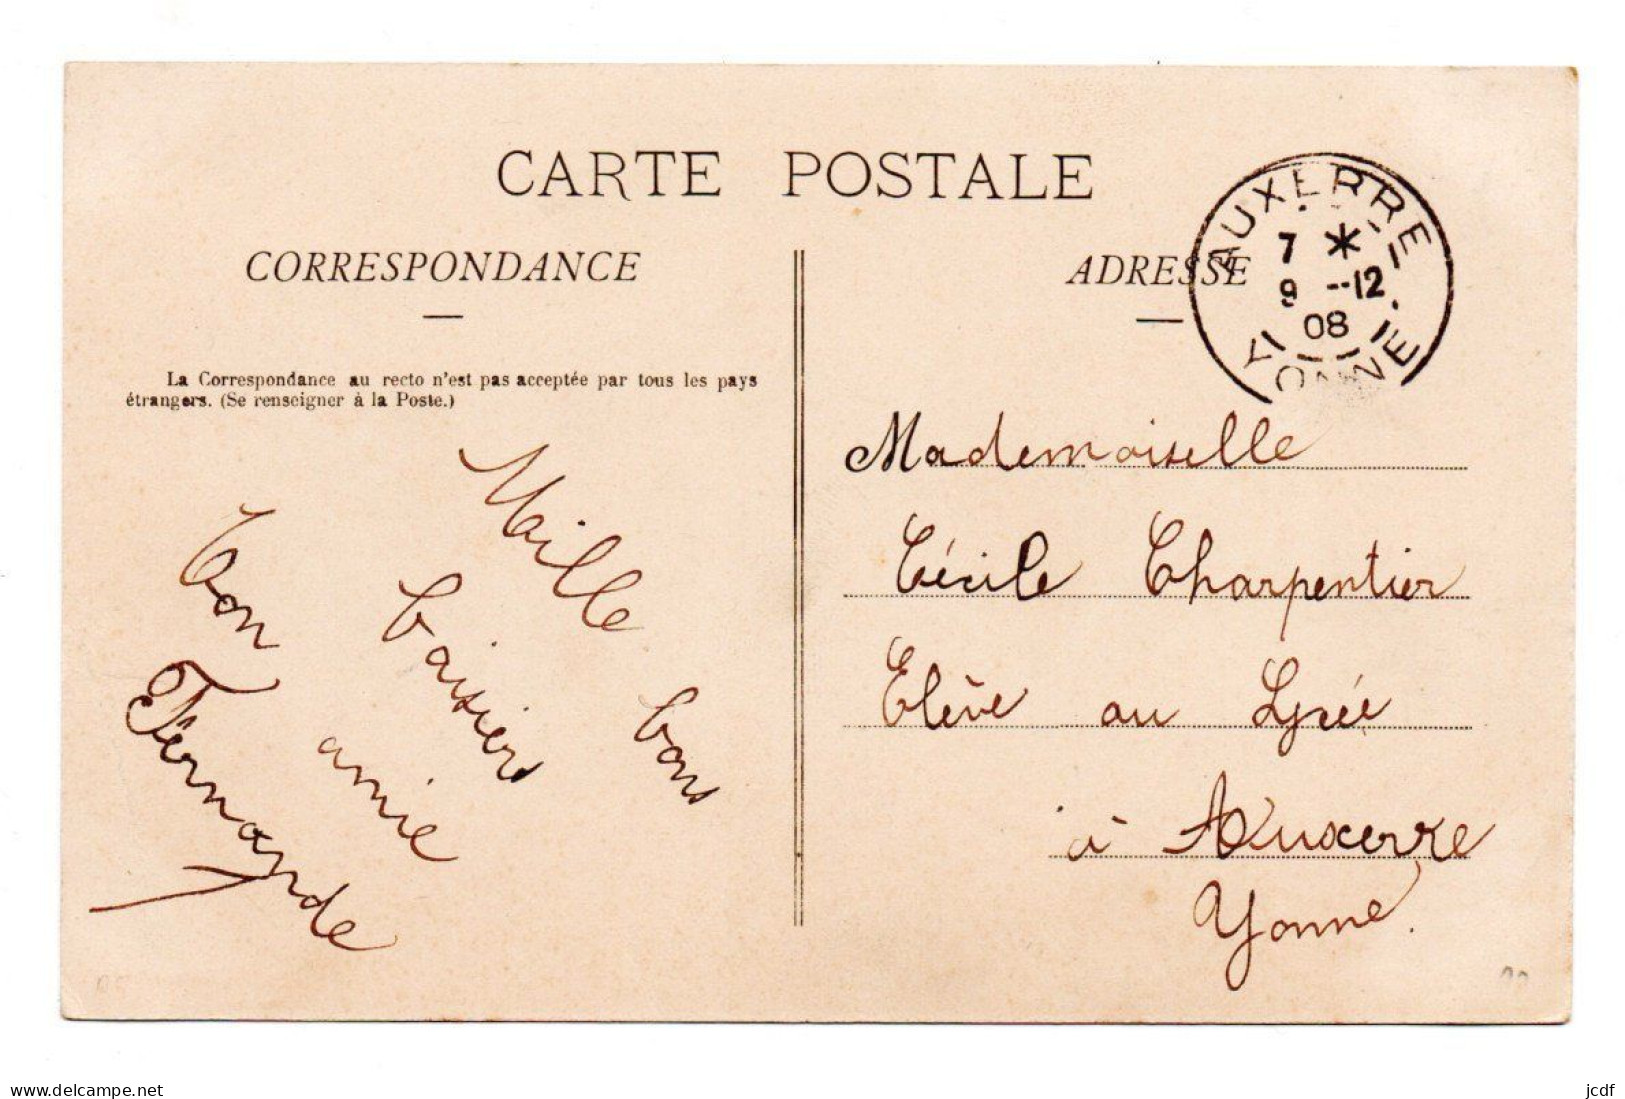 CARTE POSTALE
CORRESPONDANCE
La Correspondance au recto n'est pas acceptée par tous les pays
étrangers. (Se renseigner à la Poste.)
Mille bons
baisers
Ton amie
Fernande
ADRESSE
AUXERRE
7 *
9 --12
08
YONNE
Mademoiselle
Cécile Charpentier
Elève au Lycée
à Auxerre
Yonne.
www.delcampe.net
jcdf